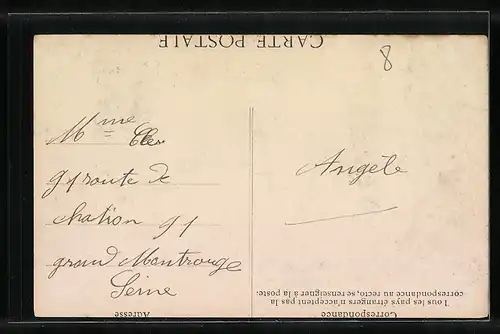 CARTE POSTALE
8
Mme
route de
chation 91
grand Montrouge
Seine
Angèle
Tous les pays étrangers n'acceptent pas la
correspondance au recto, se renseigner à la poste.
Correspondance
Adresse